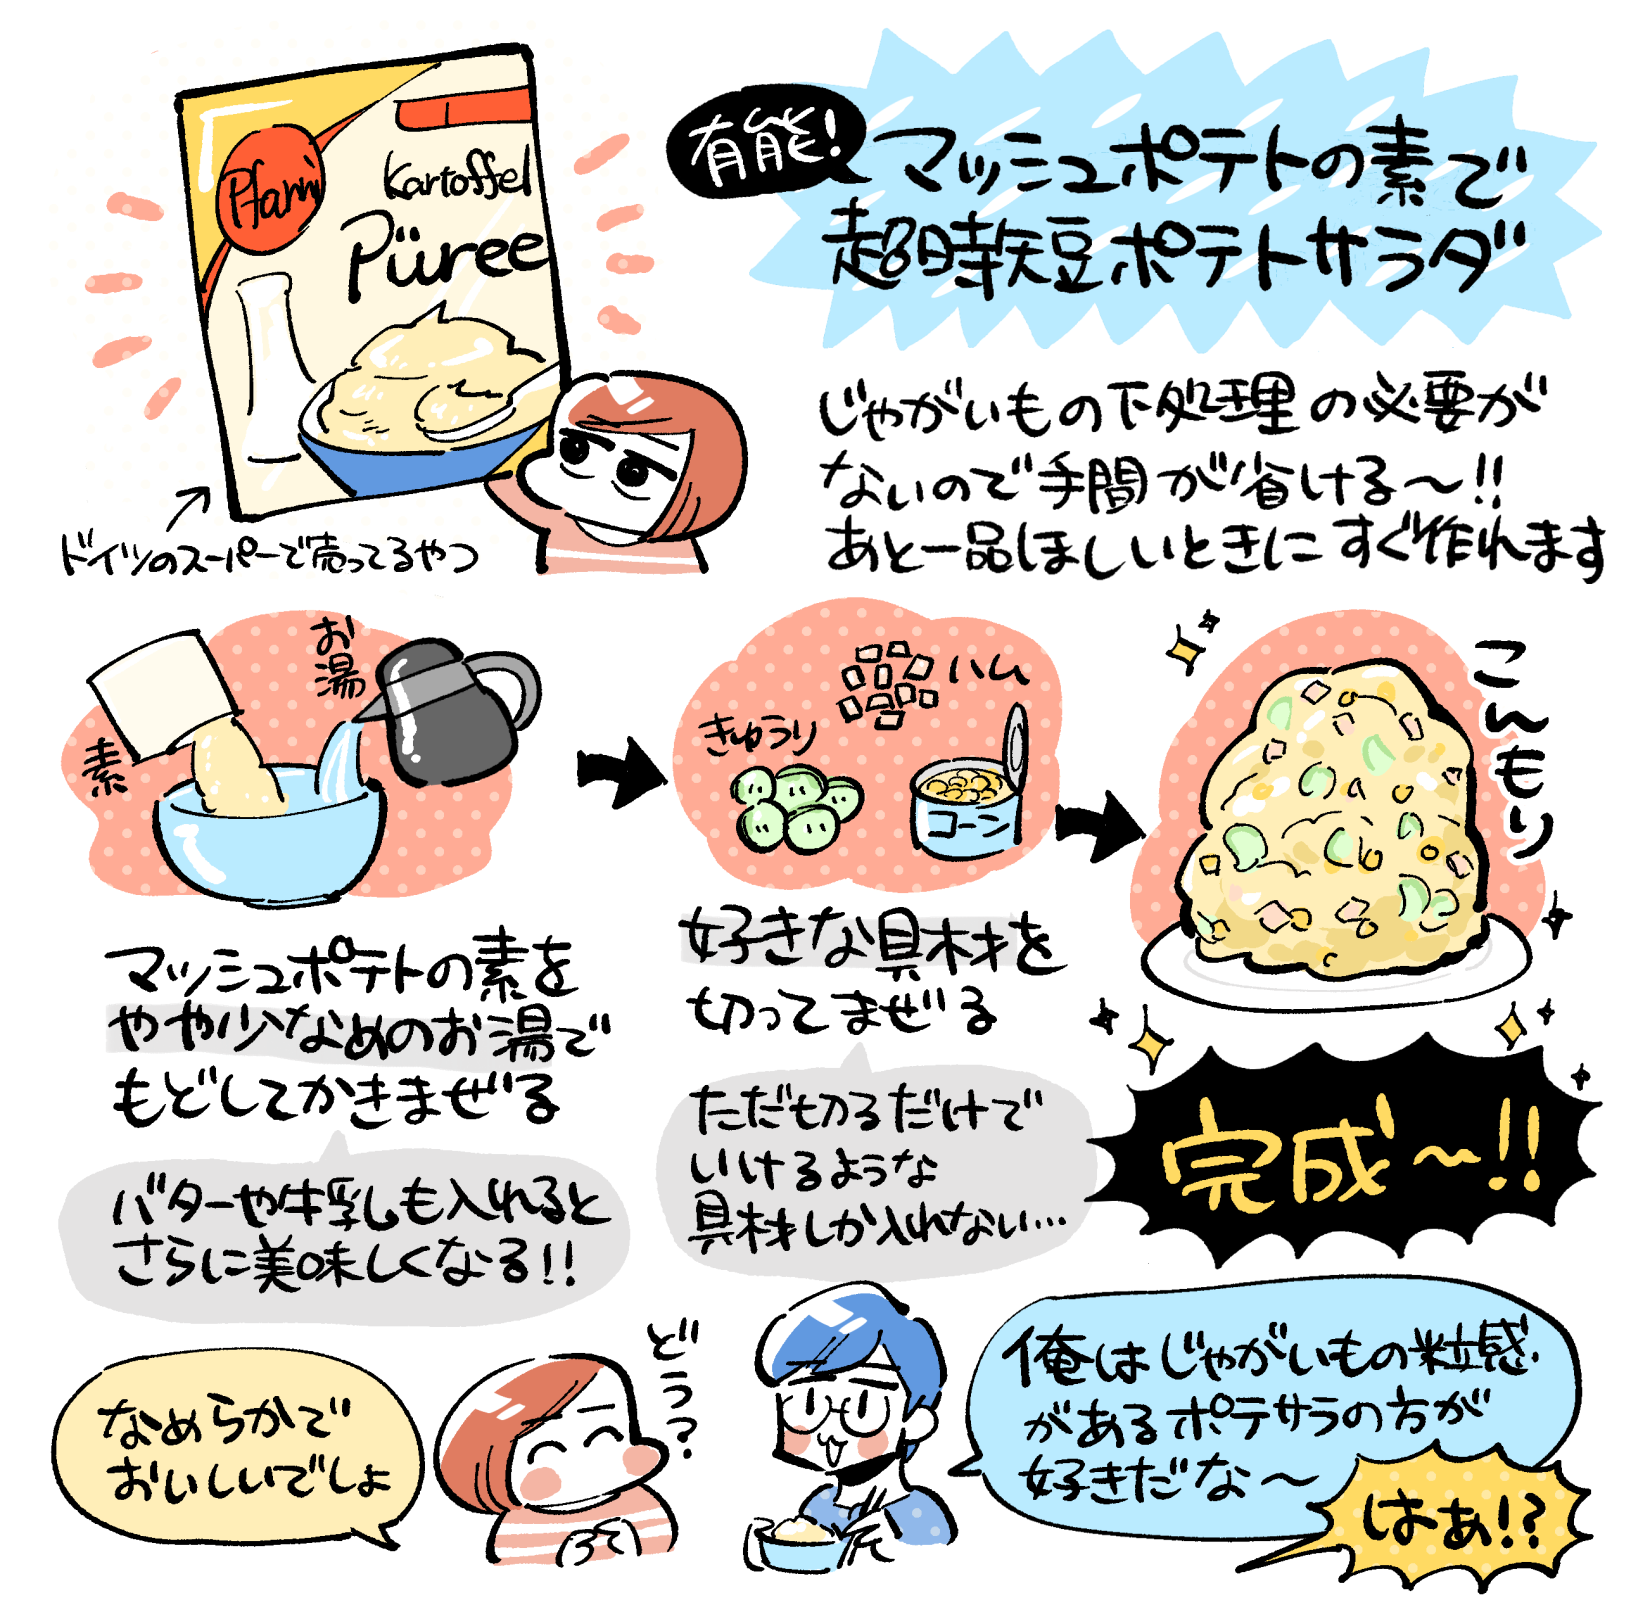 Pfanni
Kartoffel
Püree
ドイツのスーパーで売ってるやつ
有能!
マッシュポテトの素で
超時短ポテトサラダ
じゃがいもの下処理の必要が
ないので手間が省ける〜!!
あと一品ほしいときにすぐ作れます
素
お湯
マッシュポテトの素を
やや少なめのお湯で
もどしてかきまぜる
バターや牛乳も入れると
さらに美味しくなる!!
ハム
きゅうり
コーン
好きな具材を
切ってまぜる
ただ切るだけで
いけるような
具材しか入れない…
こんもり
完成〜!!
なめらかで
おいしいでしょ
どう?
俺はじゃがいもの粒感
があるポテサラの方が
好きだな〜
はぁ!?